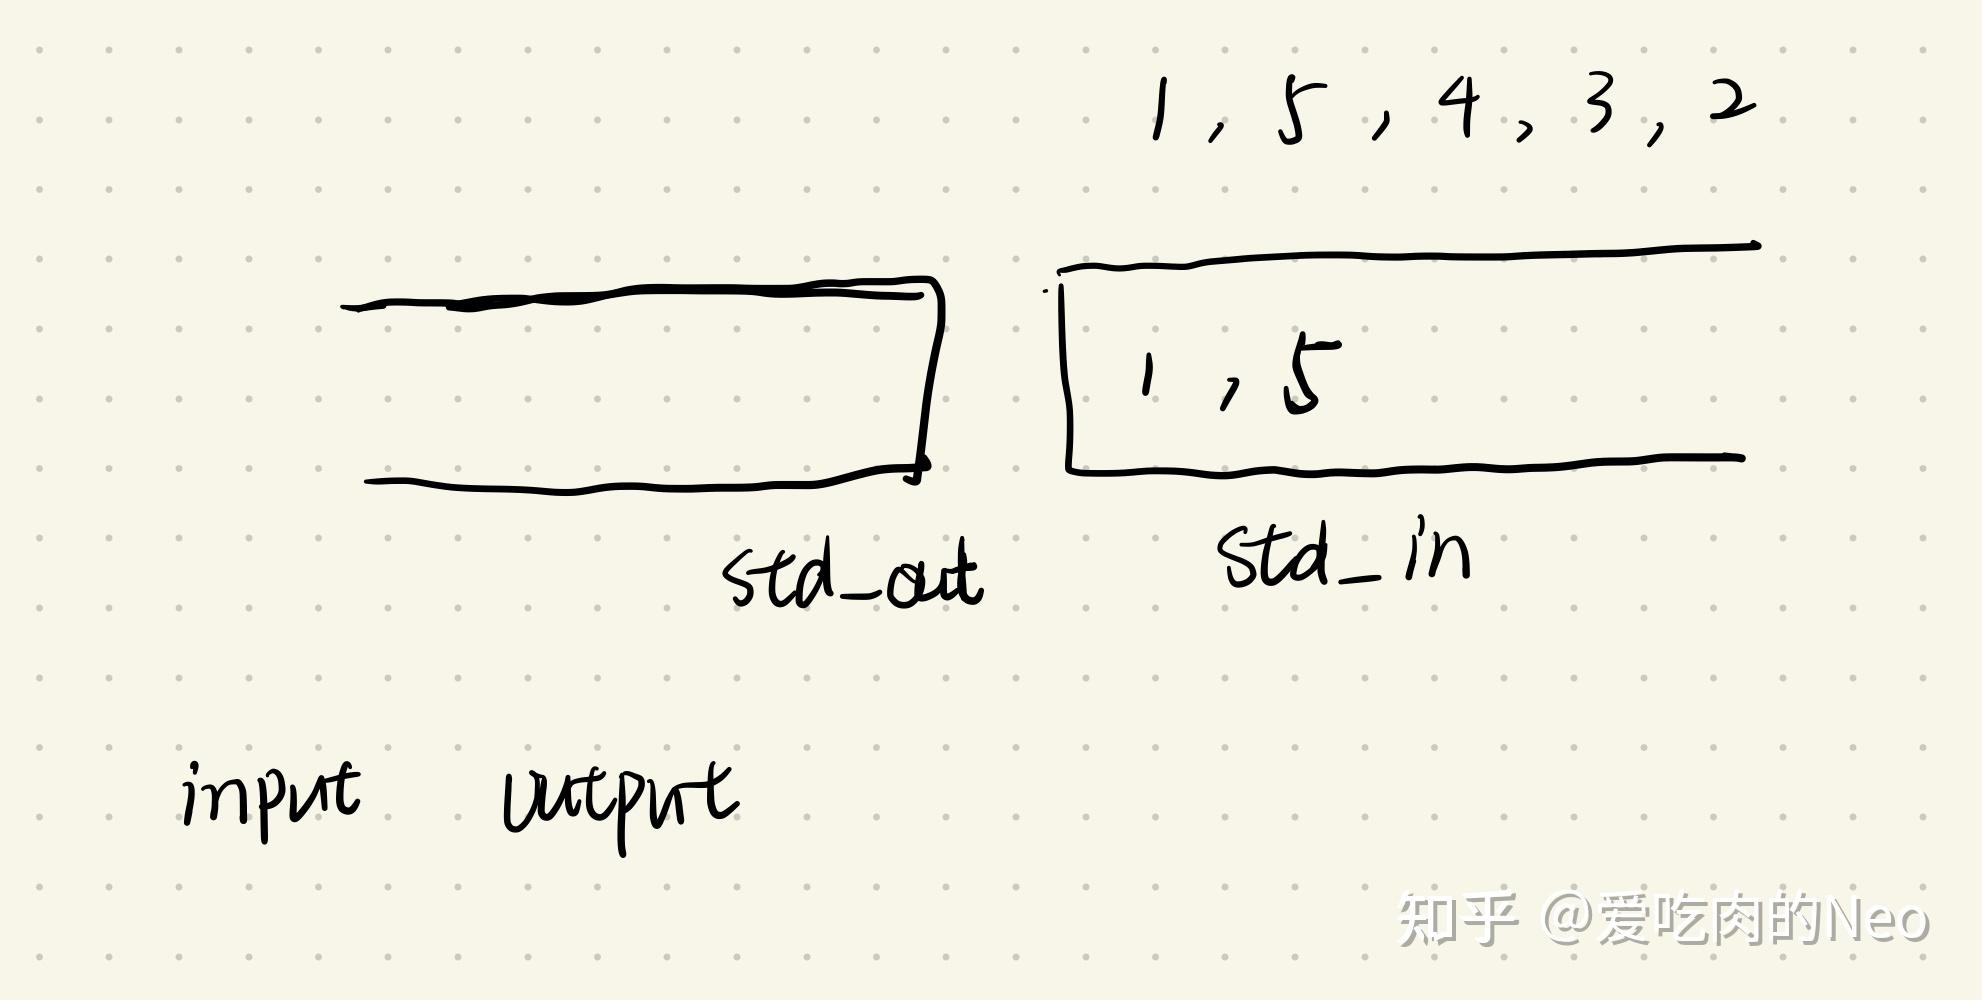 1, 5, 4, 3, 2
1, 5
std_out std_in
input output
知乎 @爱吃肉的Neo